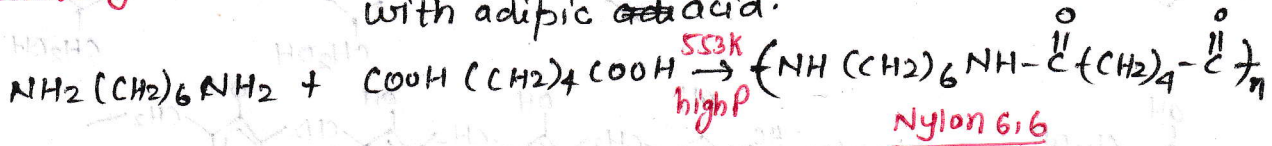 with adipic acid.
NH2 (CH2)6 NH2 + COOH (CH2)4 COOH 553K → high P {NH (CH2)6 NH-C(=O){(CH2)4-C(=O)}n
Nylon 6,6